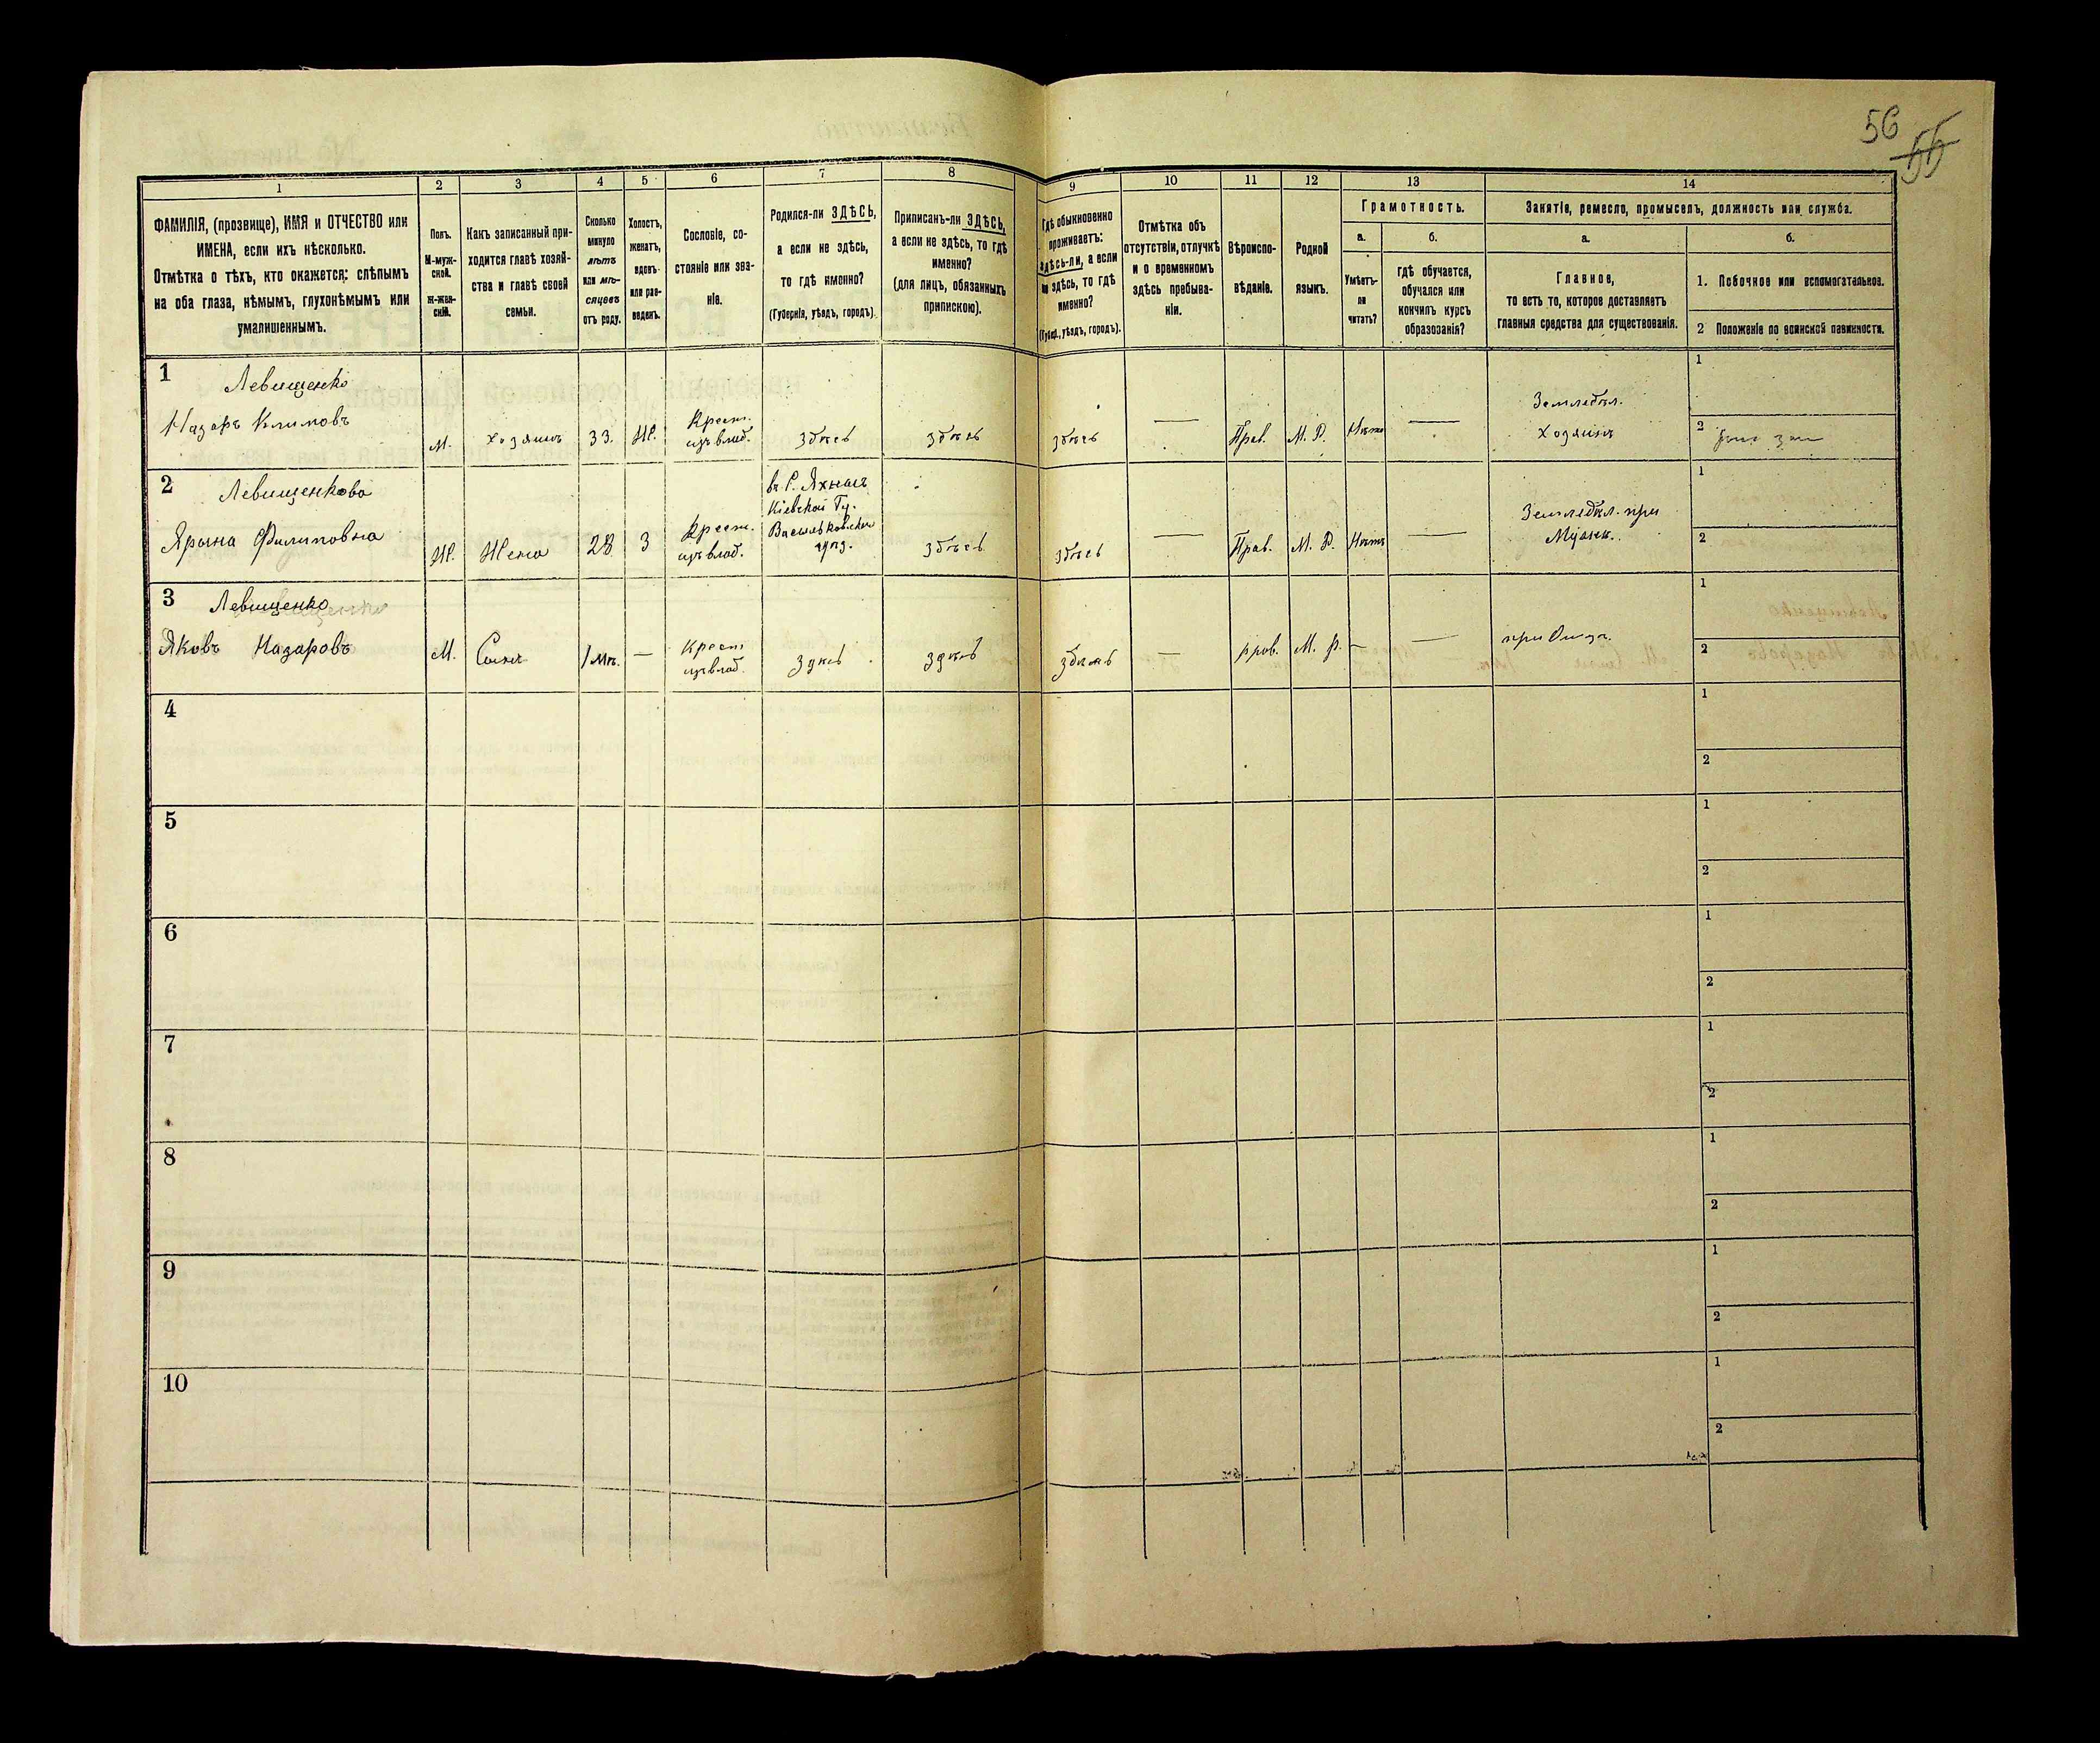 56
55
1
2
3
4
5
6
7
8
9
10
11
12
13
14
ФАМИЛІЯ, (прозвище), ИМЯ и ОТЧЕСТВО или
ИМЕНА, если ихъ нѣсколько.
Отмѣтка о тѣхъ, кто окажется: слѣпымъ
на оба глаза, нѣмымъ, глухонѣмымъ или
умалишеннымъ.
Полъ.
М-муж-
ской.
Ж-жен-
скій.
Какъ записанный при-
ходится главѣ хозяй-
ства и главѣ своей
семьи.
Сколько
минуло
лѣтъ
или мѣ-
сяцевъ
отъ роду.
Холостъ,
женатъ,
вдовъ
или раз-
веденъ.
Сословіе, со-
стояніе или зва-
ніе.
Родился-ли ЗДѢСЬ,
а если не здѣсь,
то гдѣ именно?
(Губернія, уѣздъ, городъ).
Приписанъ-ли ЗДѢСЬ,
а если не здѣсь, то гдѣ
именно?
(для лицъ, обязанныхъ
припискою).
Гдѣ обыкновенно
проживаетъ:
здѣсь-ли, а если
не здѣсь, то гдѣ
именно?
(Губерн., уѣздъ, городъ).
Отмѣтка объ
отсутствіи, отлучкѣ
и о временномъ
здѣсь пребыва-
ніи.
Вѣроиспо-
вѣданіе.
Родной
языкъ.
Грамотность.
а.
б.
Умѣетъ-
ли
читать?
гдѣ обучается,
обучался или
кончилъ курсъ
образованія?
Занятіе, ремесло, промыселъ, должность или служба.
а.
б.
Главное,
то есть то, которое доставляетъ
главныя средства для существованія.
1. Побочное или вспомогательное.
2 Положеніе по воинской повинности.
1
Левищенко
Назаръ Климовъ
М.
Хозяинъ
33.
Ж.
Крест.
изъ влад.
Здѣсь
здѣсь
здѣсь
—
Прав.
М. Р.
Нѣтъ
—
Земледѣл.
Хозяинъ
1
2
2
Левищенкова
Ярына Филиповна
Ж.
Жена
28
З
Крест.
изъ влад.
въ С. Яхнахъ
Кіевской Гу.
Васильковскаго
уѣз.
здѣсь
здѣсь
—
Прав.
М. Р.
Нѣтъ
—
Земледѣл. при
Мужѣ.
1
2
3
Левищенко
Яковъ Назаровъ
М.
Сынъ
1 мѣ.
—
Крест
изъ влад.
Здѣсь
здѣсь
здѣсь
—
прав.
М. р.
—
—
при Отцѣ.
1
2
4
1
2
5
1
2
6
1
2
7
1
2
8
1
2
9
1
2
10
1
2